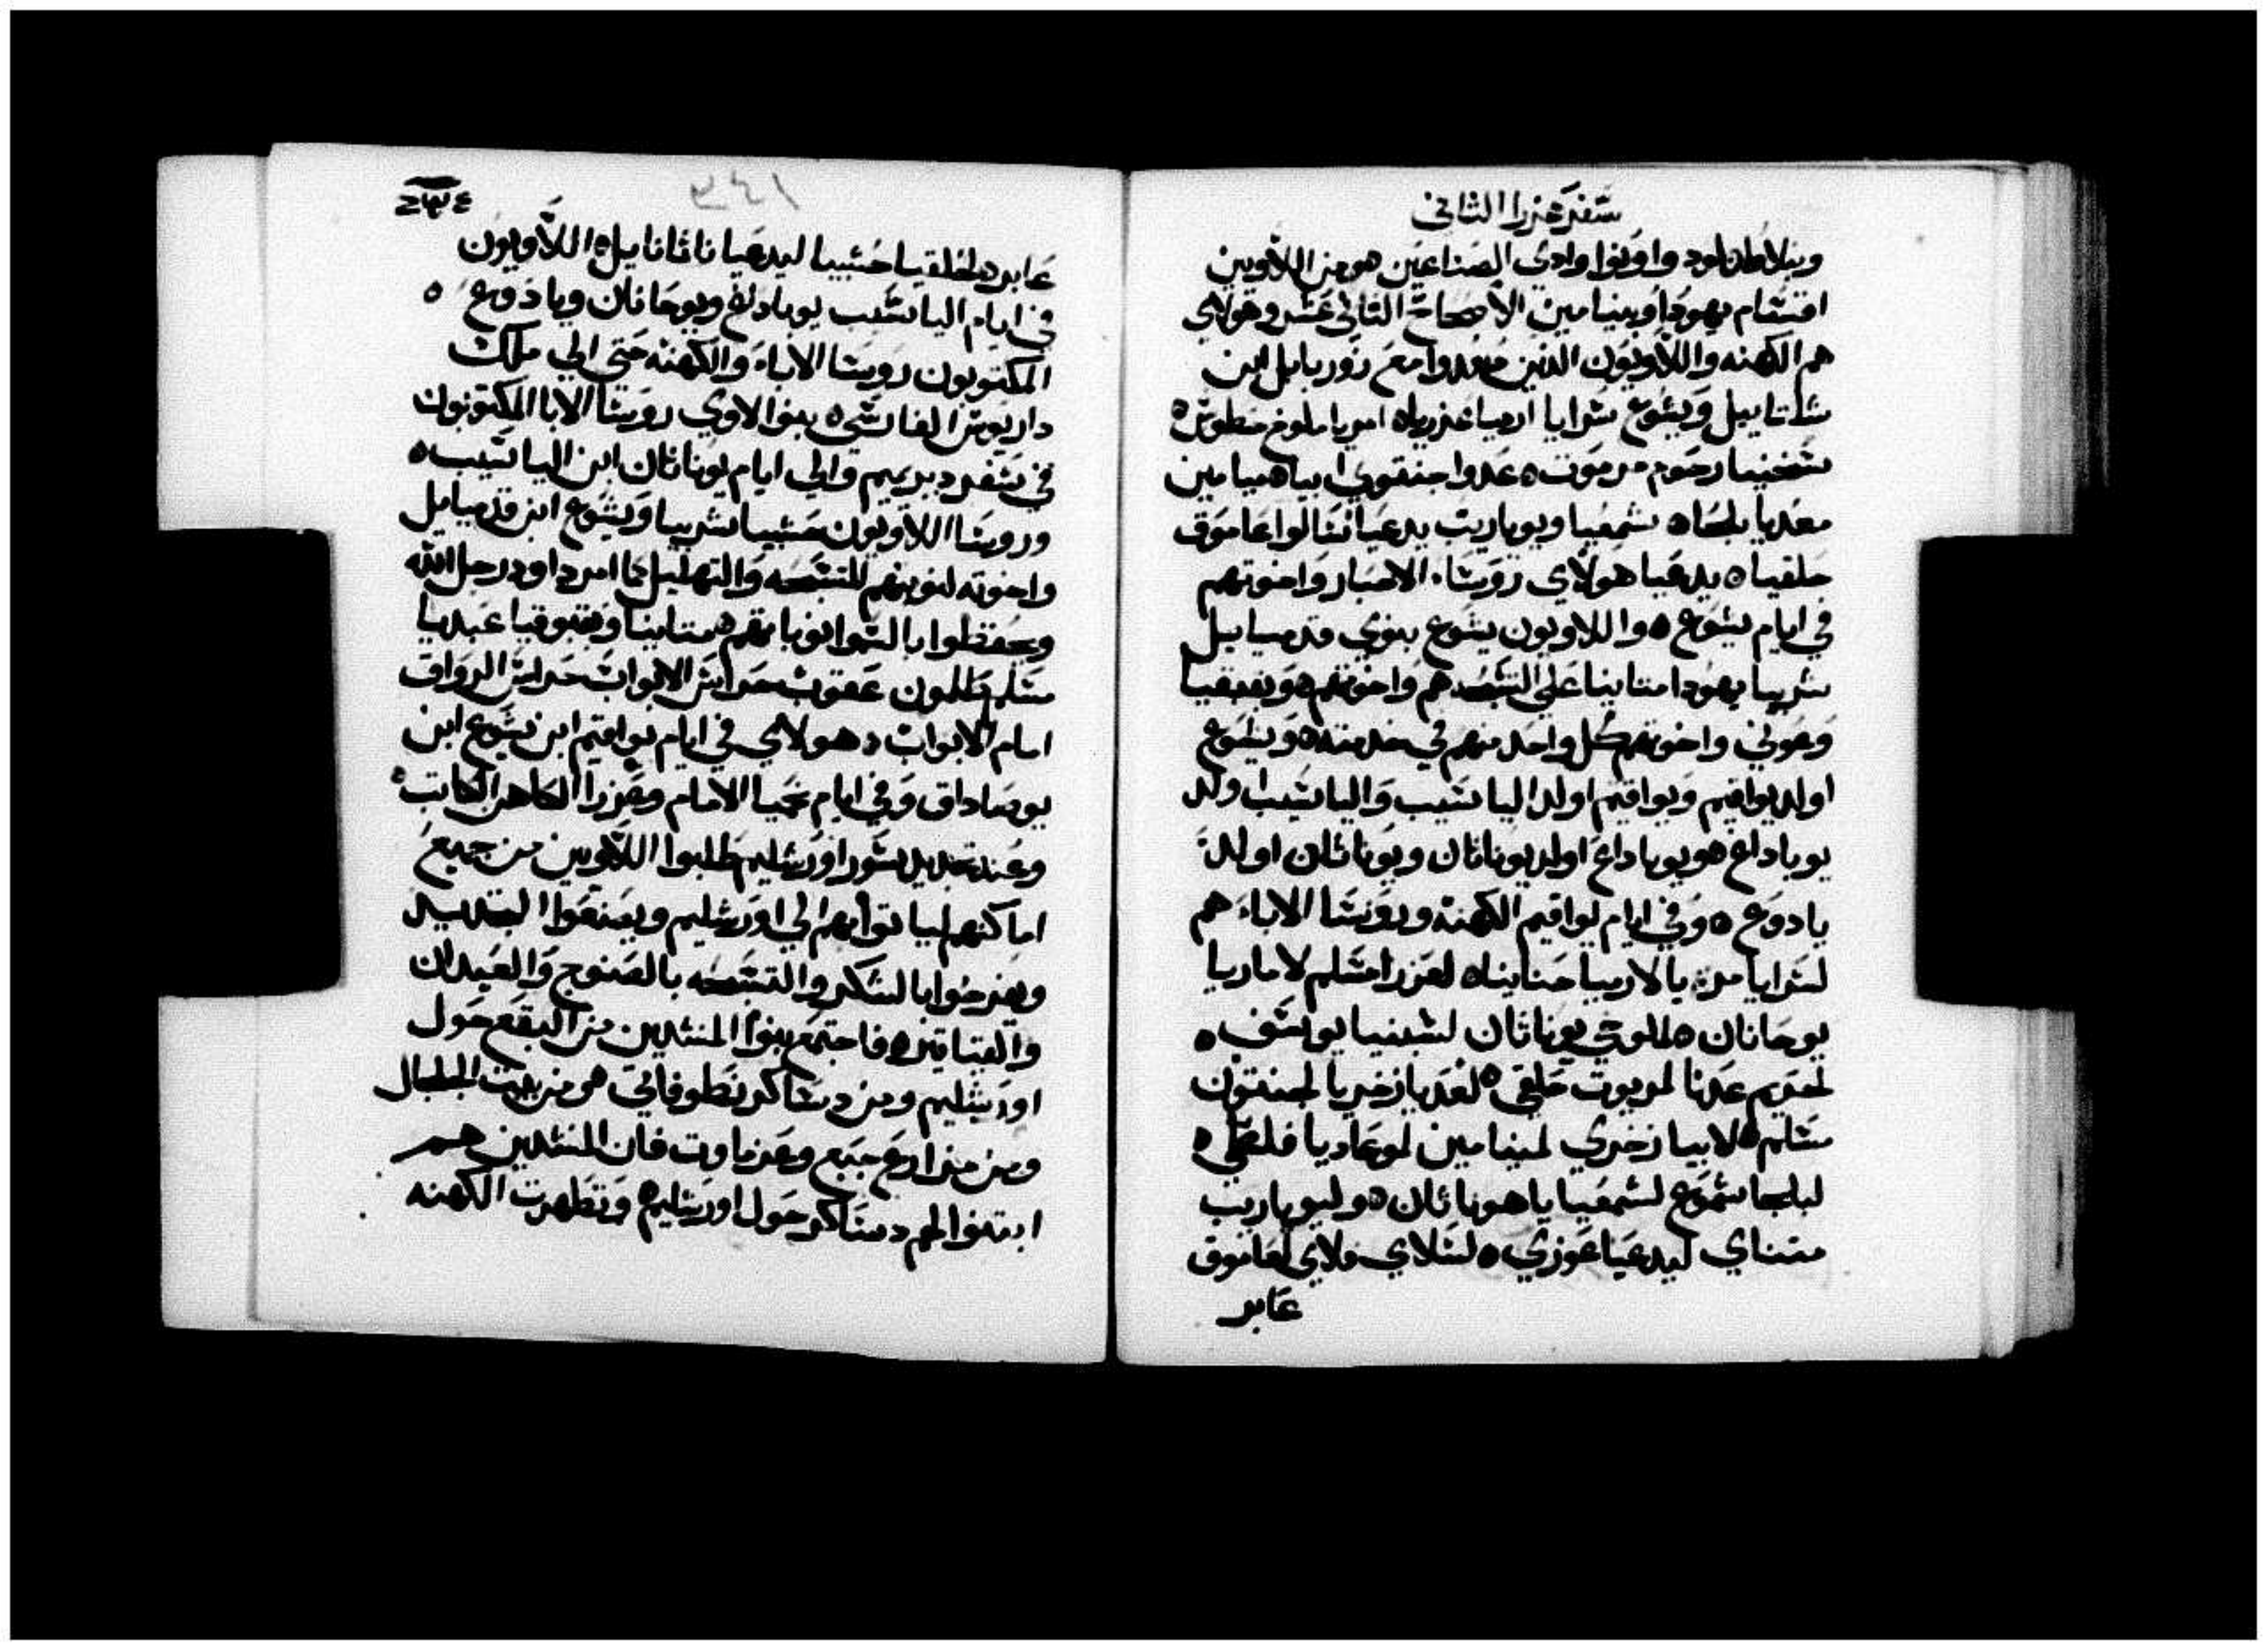 سفر عزرا الثاني
وبنلاطا لود واونوا وادي الصناعين هو من اللاويين
اقتسام يهودا وبنيامين الاصحاح الثاني عشر وهولاي
هم الكهنه واللاويون الذين صعدوا مع زوربابل ابن
شلتاييل ويشوع شرايا ارميا عزريا امريا ملوخ حطوش
شخنيا رحوم مرموت عدوا جنتوي ابيا ميامين
معديا بلجا شمعيا ويوياريب يدعيا سالوا عاموق
حلقيا يدعيا هولاي روسا الاحبار واخوتهم
في ايام يشوع واللاويون يشوع بنوي قدمياييل
شربيا يهودا متانيا على التسبحه هم واخوتهم وبقبقيا
وعوني واخوتهم كل واحد منهم في خدمته ويشوع
اولد يواقيم ويواقيم اولد الياشيب والياشيب اولد
يوياداع هو يوياداع اولد يوناتان ويوناتان اولد
يادوع وفي ايام يواقيم الكهنة وروسا الاباء هم
لشرايا مريا لارميا حنانيا لعزرا مشلم لاماريا
يوحانان لملوخي يوناتان لشبنيا يوسف
لحريم عدنا لمريوت حلقي لعديا زخريا لجنتون
مشلم لابيا زخري لمنيامين لموعاديا فلطي
لبلجا شموع لشمعيا ياهوناتان وليوياريب
متناي ليدعيا عوزي لسلاي قلاي لعاموق
عابر
٢٣٤
٣٤١
عابر لحلقيا حشبيا ليدعيا ناثانايل اللاويون
في ايام الياشيب يوياداع ويوحانان ويادوع
المكتوبون روسا الاباء والكهنه حتى الي ملك
داريوش الفارسي بنوا لاوي روسا الابا المكتوبون
في سفر دبريميم والي ايام يوناتان ابن الياشيب
وروسا اللاويون حشبيا شربيا ويشوع ابن قدمياييل
واخوته لنوبتهم للتسبحه والتهليل كما امر داود رجل الله
ويحفظوا بالسوا نوباتهم متانيا وبقبوقيا عبديا
مشلم طلمون عقوب حراس الابواب حراس الرواق
امام الابواب هولاي في ايام يواقيم ابن يشوع ابن
يوصاداق وفي ايام نحميا الامام وعزرا الكاهن الكاتب
وعند تجديد سور اورشليم طلبوا اللاويين من جميع
اماكنهم ليا توا بهم الي اورشليم ويصنعوا التجديد
ويفرحوا بالشكر والتسبحه بالصنوج والعيدان
والقياتير فاجتمع بنوا المنشدين من البقع حول
اورشليم ومن دساكر نطوفاتي هو من بيت الجلجال
ومن مزارع جبع وعزماوت فان المنشدين هم
ابتنوا لهم دساكر حول اورشليم وتطهرت الكهنه